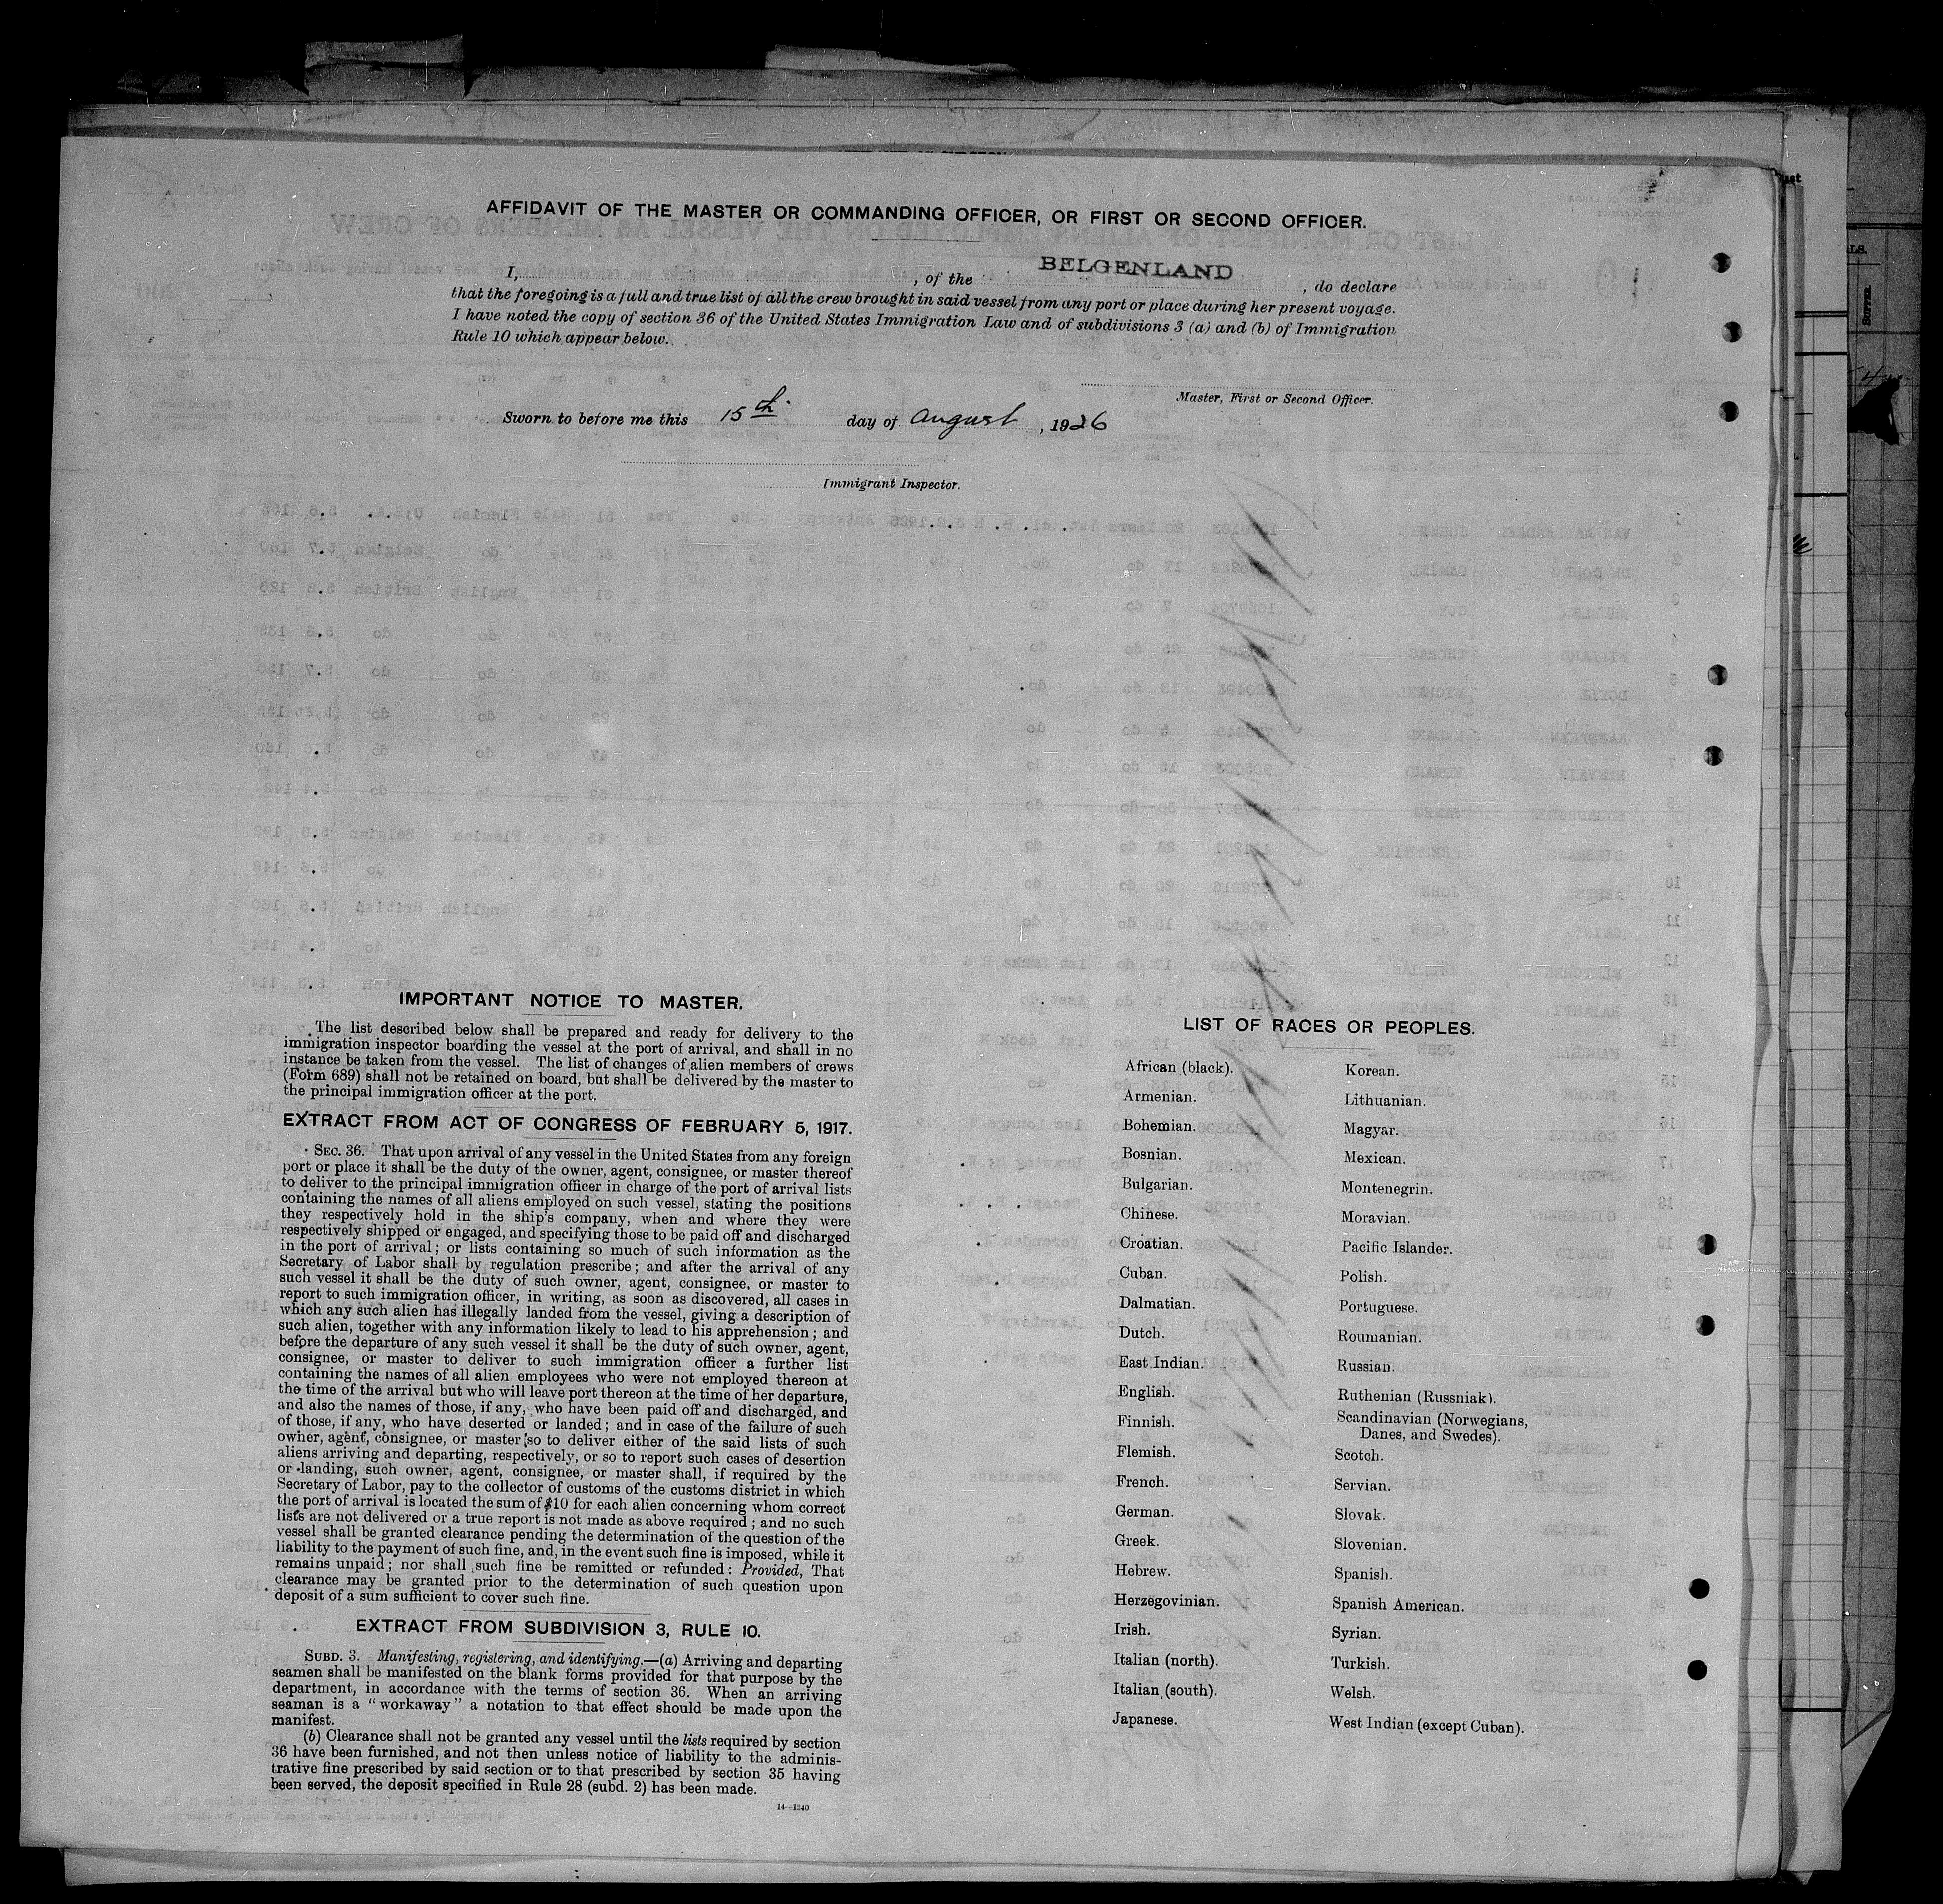 AFFIDAVIT OF THE MASTER OR COMMANDING OFFICER, OR FIRST OR SECOND OFFICER.
I, , of the BELGENLAND , do declare
that the foregoing is a full and true list of all the crew brought in said vessel from any port or place during her present voyage.
I have noted the copy of section 36 of the United States Immigration Law and of subdivisions 3 (a) and (b) of Immigration
Rule 10 which appear below.
Master, First or Second Officer.
Sworn to before me this 15th day of August , 1926
Immigrant Inspector.
IMPORTANT NOTICE TO MASTER.
The list described below shall be prepared and ready for delivery to the
immigration inspector boarding the vessel at the port of arrival, and shall in no
instance be taken from the vessel. The list of changes of alien members of crews
(Form 689) shall not be retained on board, but shall be delivered by the master to
the principal immigration officer at the port.
EXTRACT FROM ACT OF CONGRESS OF FEBRUARY 5, 1917.
SEC. 36. That upon arrival of any vessel in the United States from any foreign
port or place it shall be the duty of the owner, agent, consignee, or master thereof
to deliver to the principal immigration officer in charge of the port of arrival lists
containing the names of all aliens employed on such vessel, stating the positions
they respectively hold in the ship's company, when and where they were
respectively shipped or engaged, and specifying those to be paid off and discharged
in the port of arrival; or lists containing so much of such information as the
Secretary of Labor shall by regulation prescribe; and after the arrival of any
such vessel it shall be the duty of such owner, agent, consignee, or master to
report to such immigration officer, in writing, as soon as discovered, all cases in
which any such alien has illegally landed from the vessel, giving a description of
such alien, together with any information likely to lead to his apprehension; and
before the departure of any such vessel it shall be the duty of such owner, agent,
consignee, or master to deliver to such immigration officer a further list
containing the names of all alien employees who were not employed thereon at
the time of the arrival but who will leave port thereon at the time of her departure,
and also the names of those, if any, who have been paid off and discharged, and
of those, if any, who have deserted or landed; and in case of the failure of such
owner, agent, consignee, or master so to deliver either of the said lists of such
aliens arriving and departing, respectively, or so to report such cases of desertion
or landing, such owner, agent, consignee, or master shall, if required by the
Secretary of Labor, pay to the collector of customs of the customs district in which
the port of arrival is located the sum of $10 for each alien concerning whom correct
lists are not delivered or a true report is not made as above required; and no such
vessel shall be granted clearance pending the determination of the question of the
liability to the payment of such fine, and, in the event such fine is imposed, while it
remains unpaid; nor shall such fine be remitted or refunded: Provided, That
clearance may be granted prior to the determination of such question upon
deposit of a sum sufficient to cover such fine.
EXTRACT FROM SUBDIVISION 3, RULE 10.
SUBD. 3. Manifesting, registering, and identifying.—(a) Arriving and departing
seamen shall be manifested on the blank forms provided for that purpose by the
department, in accordance with the terms of section 36. When an arriving
seaman is a "workaway" a notation to that effect should be made upon the
manifest.
(b) Clearance shall not be granted any vessel until the lists required by section
36 have been furnished, and not then unless notice of liability to the adminis-
trative fine prescribed by said section or to that prescribed by section 35 having
been served, the deposit specified in Rule 28 (subd. 2) has been made.
14—1240
LIST OF RACES OR PEOPLES.
African (black).
Armenian.
Bohemian.
Bosnian.
Bulgarian.
Chinese.
Croatian.
Cuban.
Dalmatian.
Dutch.
East Indian.
English.
Finnish.
Flemish.
French.
German.
Greek.
Hebrew.
Herzegovinian.
Irish.
Italian (north).
Italian (south).
Japanese.
Korean.
Lithuanian.
Magyar.
Mexican.
Montenegrin.
Moravian.
Pacific Islander.
Polish.
Portuguese.
Roumanian.
Russian.
Ruthenian (Russniak).
Scandinavian (Norwegians,
Danes, and Swedes).
Scotch.
Servian.
Slovak.
Slovenian.
Spanish.
Spanish American.
Syrian.
Turkish.
Welsh.
West Indian (except Cuban).